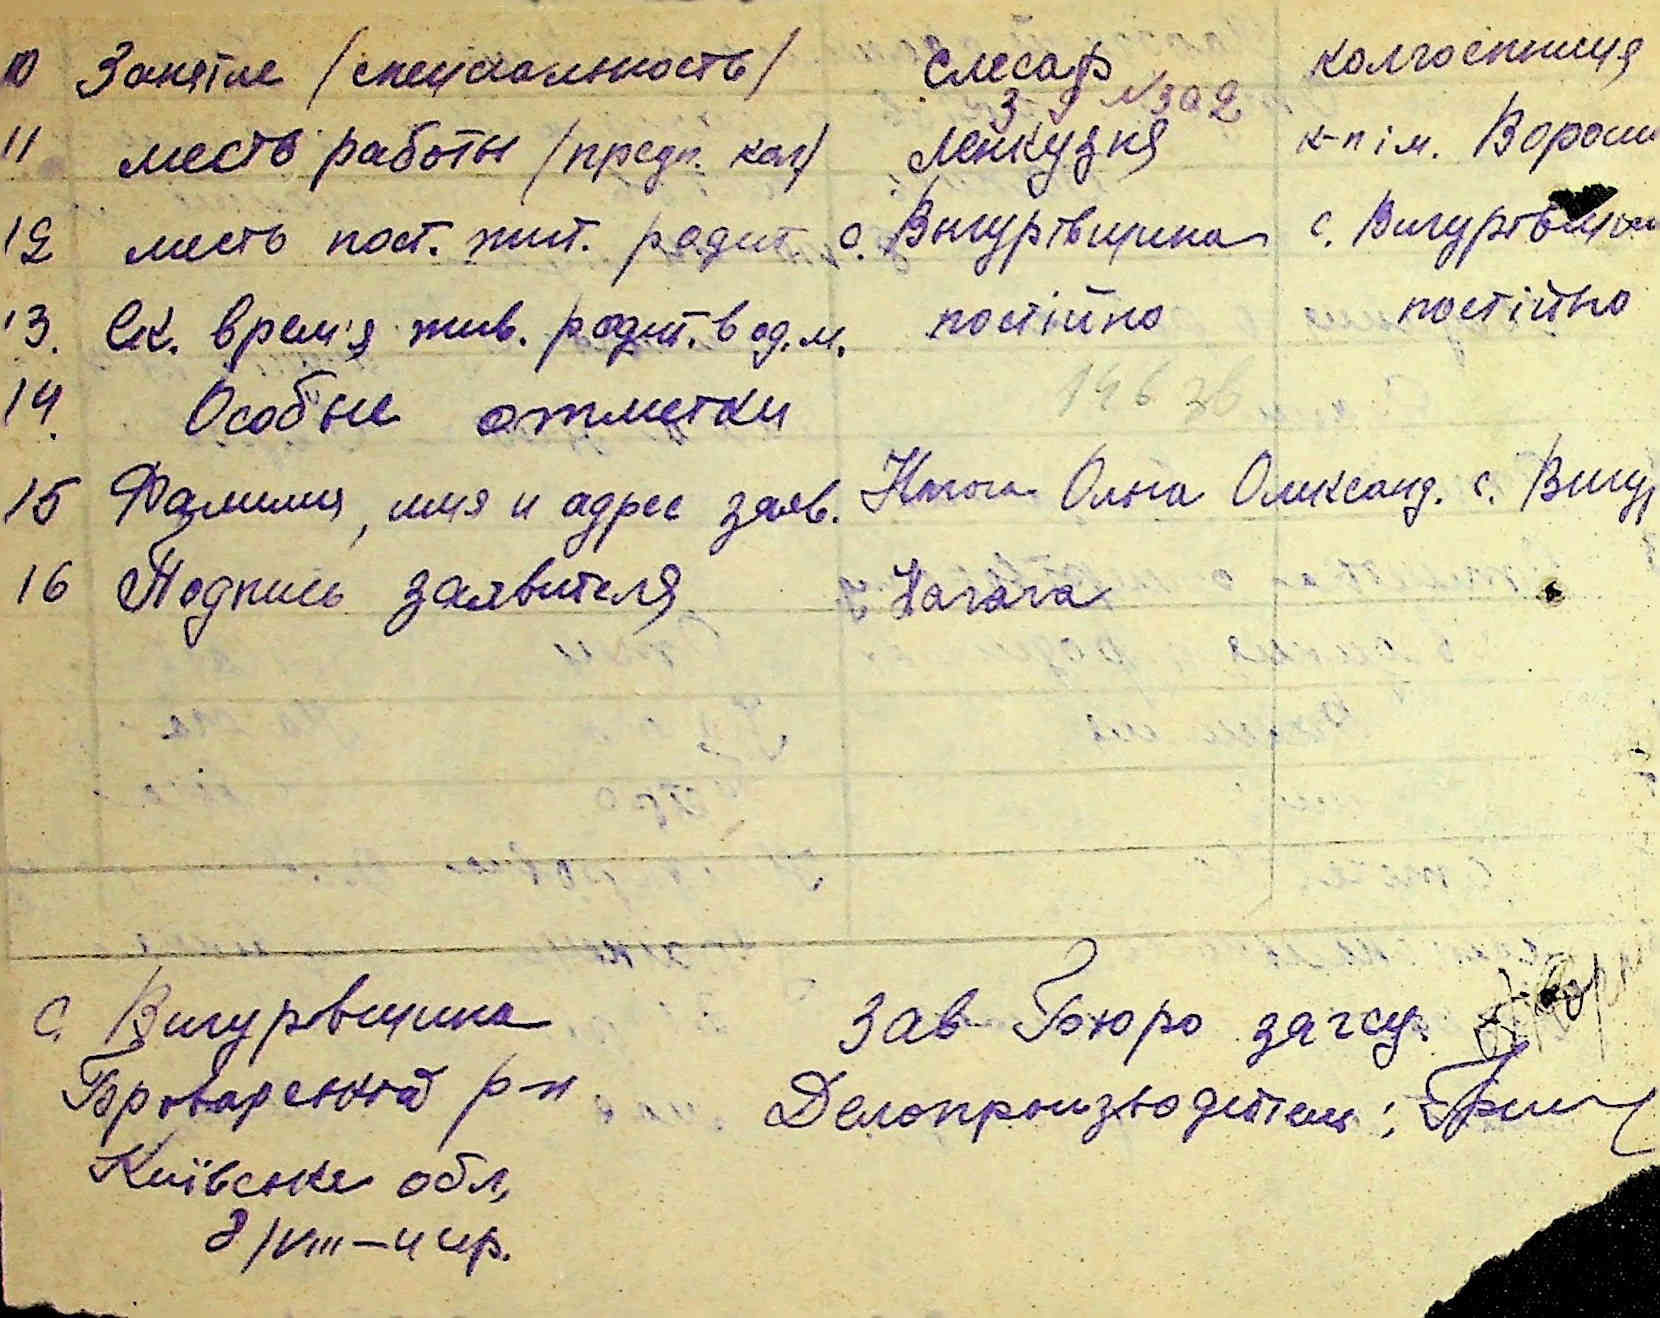 10 Занятие (специальность) Слесарь колгоспниця
З-д № 302
11 место работы (предп. кол) Ленкузня к-п ім. Вороши
12 место пост. жит. родит с. Вигурівщина с. Вигурівщин
13. Ск. время жив. родит. в од. м. постійно постійно
14. Особые отметки
15 Фамилия, имя и адрес заяв. Ольга Олександ. с. Вигу
16 Подпись заявителя
с. Вигурівщина Зав Бюро загсу
Броварський р-н Делопроизводитель:
Київське обл,